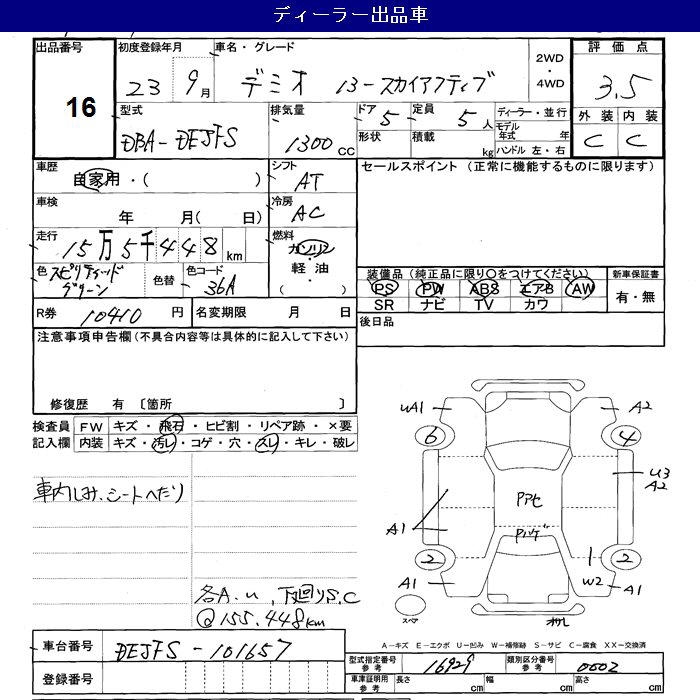 ディーラー出品車
出品番号
16
初度登録年月
23 9月
車名・グレード
デミオ 13-スカイアクティブ
2WD
・
4WD
評価点
3.5
型式
DBA-DEJFS
排気量
1300cc
ドア
5
定員
5人
形状
積載
kg
ディーラー・並行
モデル年式 年
ハンドル 左・右
外装 内装
C C
車歴
自家用・( )
シフト
AT
セールスポイント (正常に機能するものに限ります)
車検
年 月( 日)
冷房
AC
走行
15万5千448km
燃料
ガソリン
・
軽油
( )
色
スピリティッドグリーン
色替
色コード
36A
装備品 (純正品に限り○をつけてください)
PS PW ABS エアB AW
SR ナビ TV カワ
新車保証書
有・無
R券 10410円
名変期限 月 日
後日品
注意事項申告欄(不具合内容等は具体的に記入して下さい)
修復歴 有 〔箇所 〕
検査員
記入欄
FW キズ・飛石・ヒビ割・リペア跡・×要
内装 キズ・汚レ・コゲ・穴・スレ・キレ・破レ
車内しみ、シートへたり
各A.u、下回りS,C
@155.448km
uA1
A2
6
4
U3
A2
Pアセ
A1
Pハゲ
2
2
A1
W2
A1
スペア
A-キズ E-エクボ U-凹み W-補修跡 S-サビ C-腐食 XX-交換済
車台番号
DEJFS-101657
登録番号
型式指定番号
参考
16929
類別区分番号
参考
0002
車庫証明用
参考
長さ cm
幅 cm
高さ cm